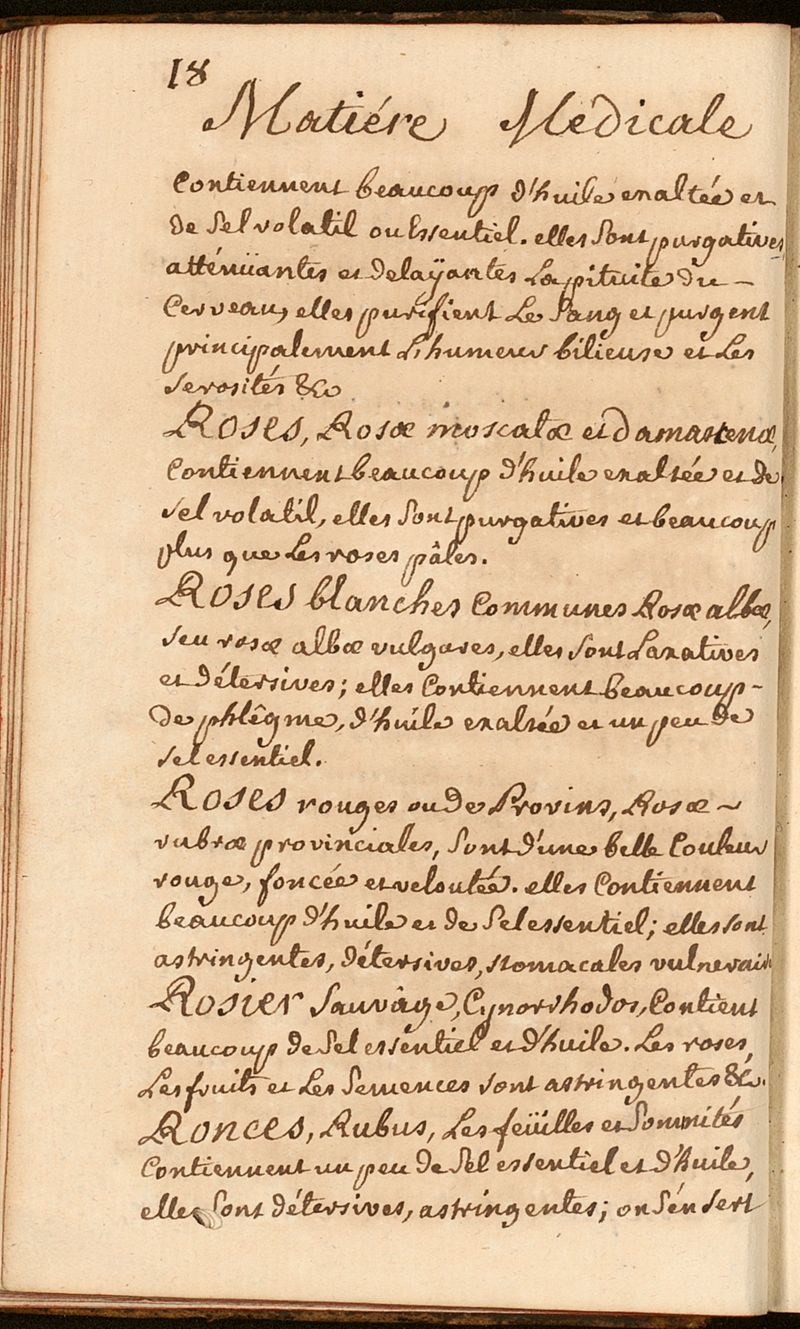 18
Matiére Médicale
Contiennent beaucoup d'huile exaltée et
de Sel volatil ou Essentiel. elles sont purgatives,
atténüantes et delaÿantes La pituite du -
Cerveau, elles purifient Le Sang et purgent
principalement L'humeur bilieuse et Les
serosités &c
ROSES, Rosæ moscatæ et damascenæ,
Contiennent beaucoup d'huile exaltée et de
sel volatil, elles sont purgatives et beaucoup
plus que Les roses pâles.
ROSES blanches Communes Rosæ albæ,
seu rosæ albæ vulgares, elles sont Laxatives
et détersives; elles Contiennent beaucoup -
de phlêgme, d'huile exaltée et un peu de
sel essentiel.
ROSES rouges ou de Provins, Rosæ ~
rubræ provinciales, sont d'une belle Couleur
rouge, foncée et veloutée. elles Contiennent
beaucoup d'huile et de Sel essentiel; elles sont
astringentes, détersives, stomacales vulnerair
ROSIER Sauvâge, Cynorrhodos, Contient
beaucoup de Sel essentiel et d'huile. Les roses,
Les fruits et Les Semences sont astringentes &c.
RONCES, Rubus, Les feüilles et Sommités
Contiennent un peu de Sel essentiel et d'huile,
elles sont détersives, astringentes; on s'én sert